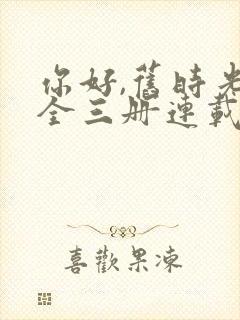 你好,舊時光
全三册連載
喜歡果凍